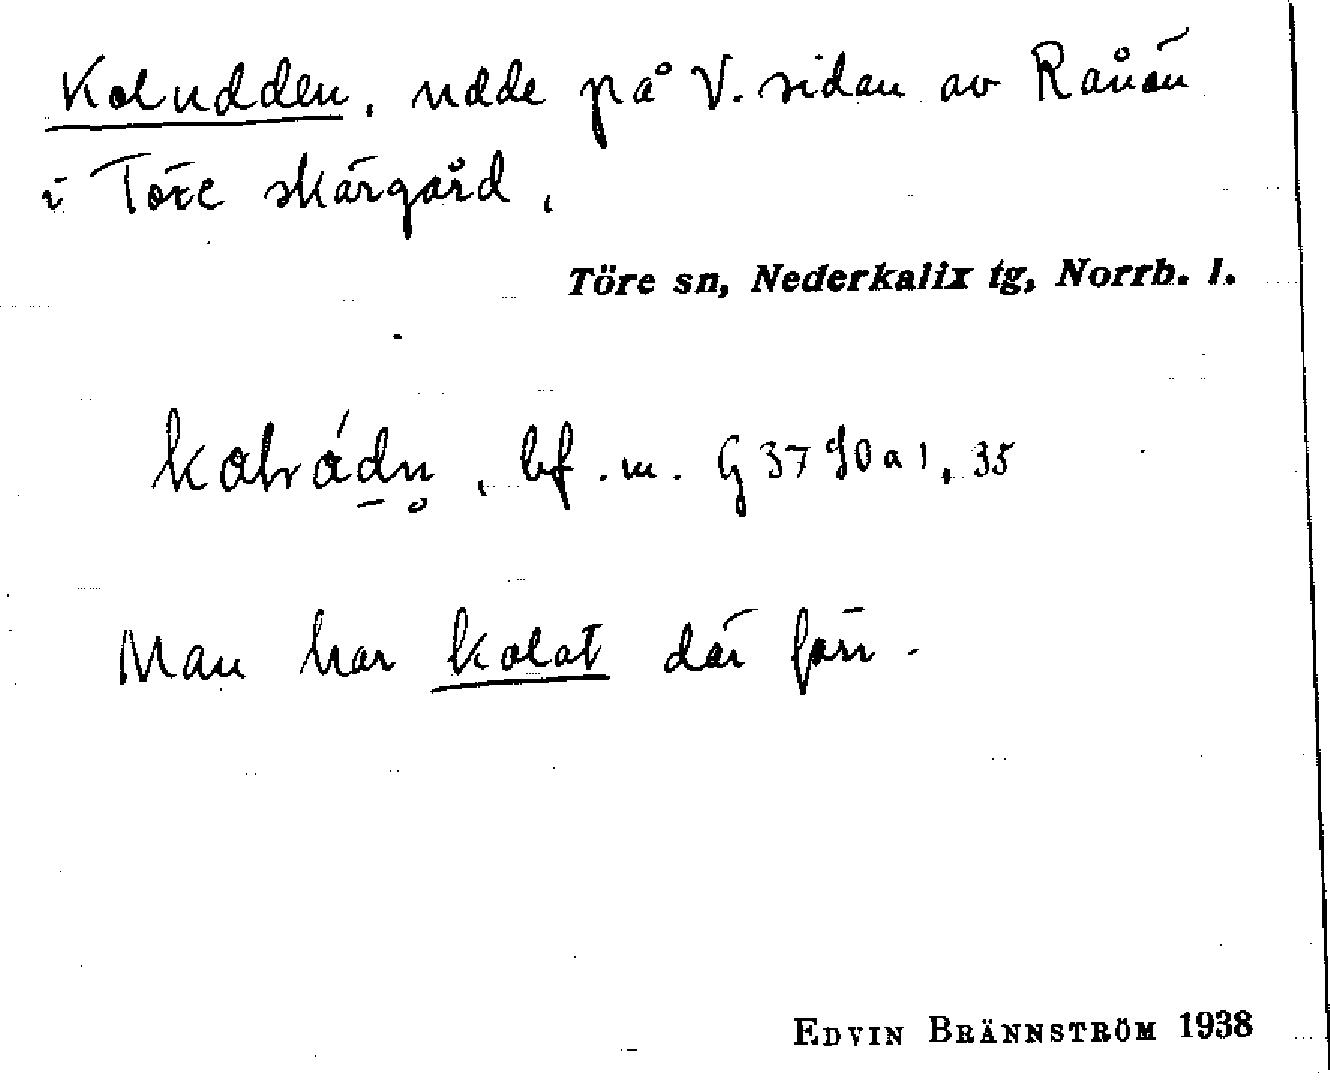 Koludden, udde på V. sidan av Rånön
i Töre skärgård.
Töre sn, Nederkalix tg, Norrb. l.
bf. m. G 37 90 a 1, 35
Man har kolat där förr.
EDVIN BRÄNNSTRÖM 1938